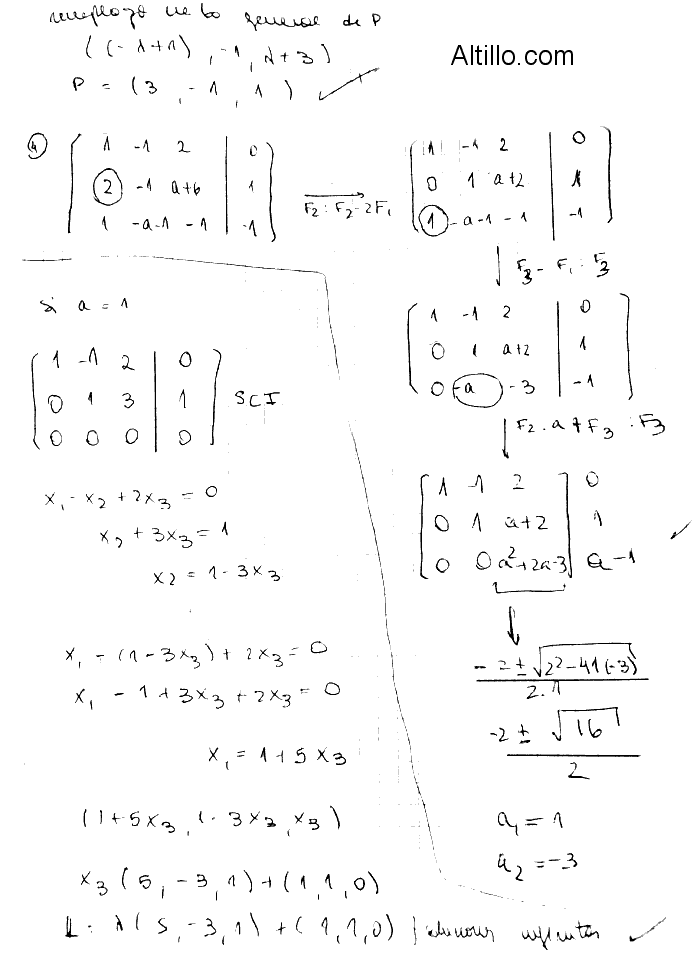 reemplazo en la general de P
((-λ+1), -1, λ+3)
Altillo.com
P = (3, -1, 1)
4
1 -1 2 | 0
2 -1 a+6 | 1
1 -a-1 -1 | -1
F2: F2-2F1
1 -1 2 | 0
0 1 a+2 | 1
1 -a-1 -1 | -1
F3 - F1 : F3
1 -1 2 | 0
0 1 a+2 | 1
0 -a -3 | -1
F2 . a + F3 : F3
1 -1 2 | 0
0 1 a+2 | 1
0 0 a²+2a-3 | a-1
-2 ± √2²-41(-3)
2.1
-2 ± √16
2
a1 = 1
a2 = -3
si a = 1
1 -1 2 | 0
0 1 3 | 1
0 0 0 | 0
SCI
x1 - x2 + 2x3 = 0
x2 + 3x3 = 1
x2 = 1 - 3x3
x1 - (1 - 3x3) + 2x3 = 0
x1 - 1 + 3x3 + 2x3 = 0
x1 = 1 + 5x3
(1+5x3, 1-3x3, x3)
x3 (5, -3, 1) + (1, 1, 0)
L: λ(5, -3, 1) + (1, 1, 0) infinitas